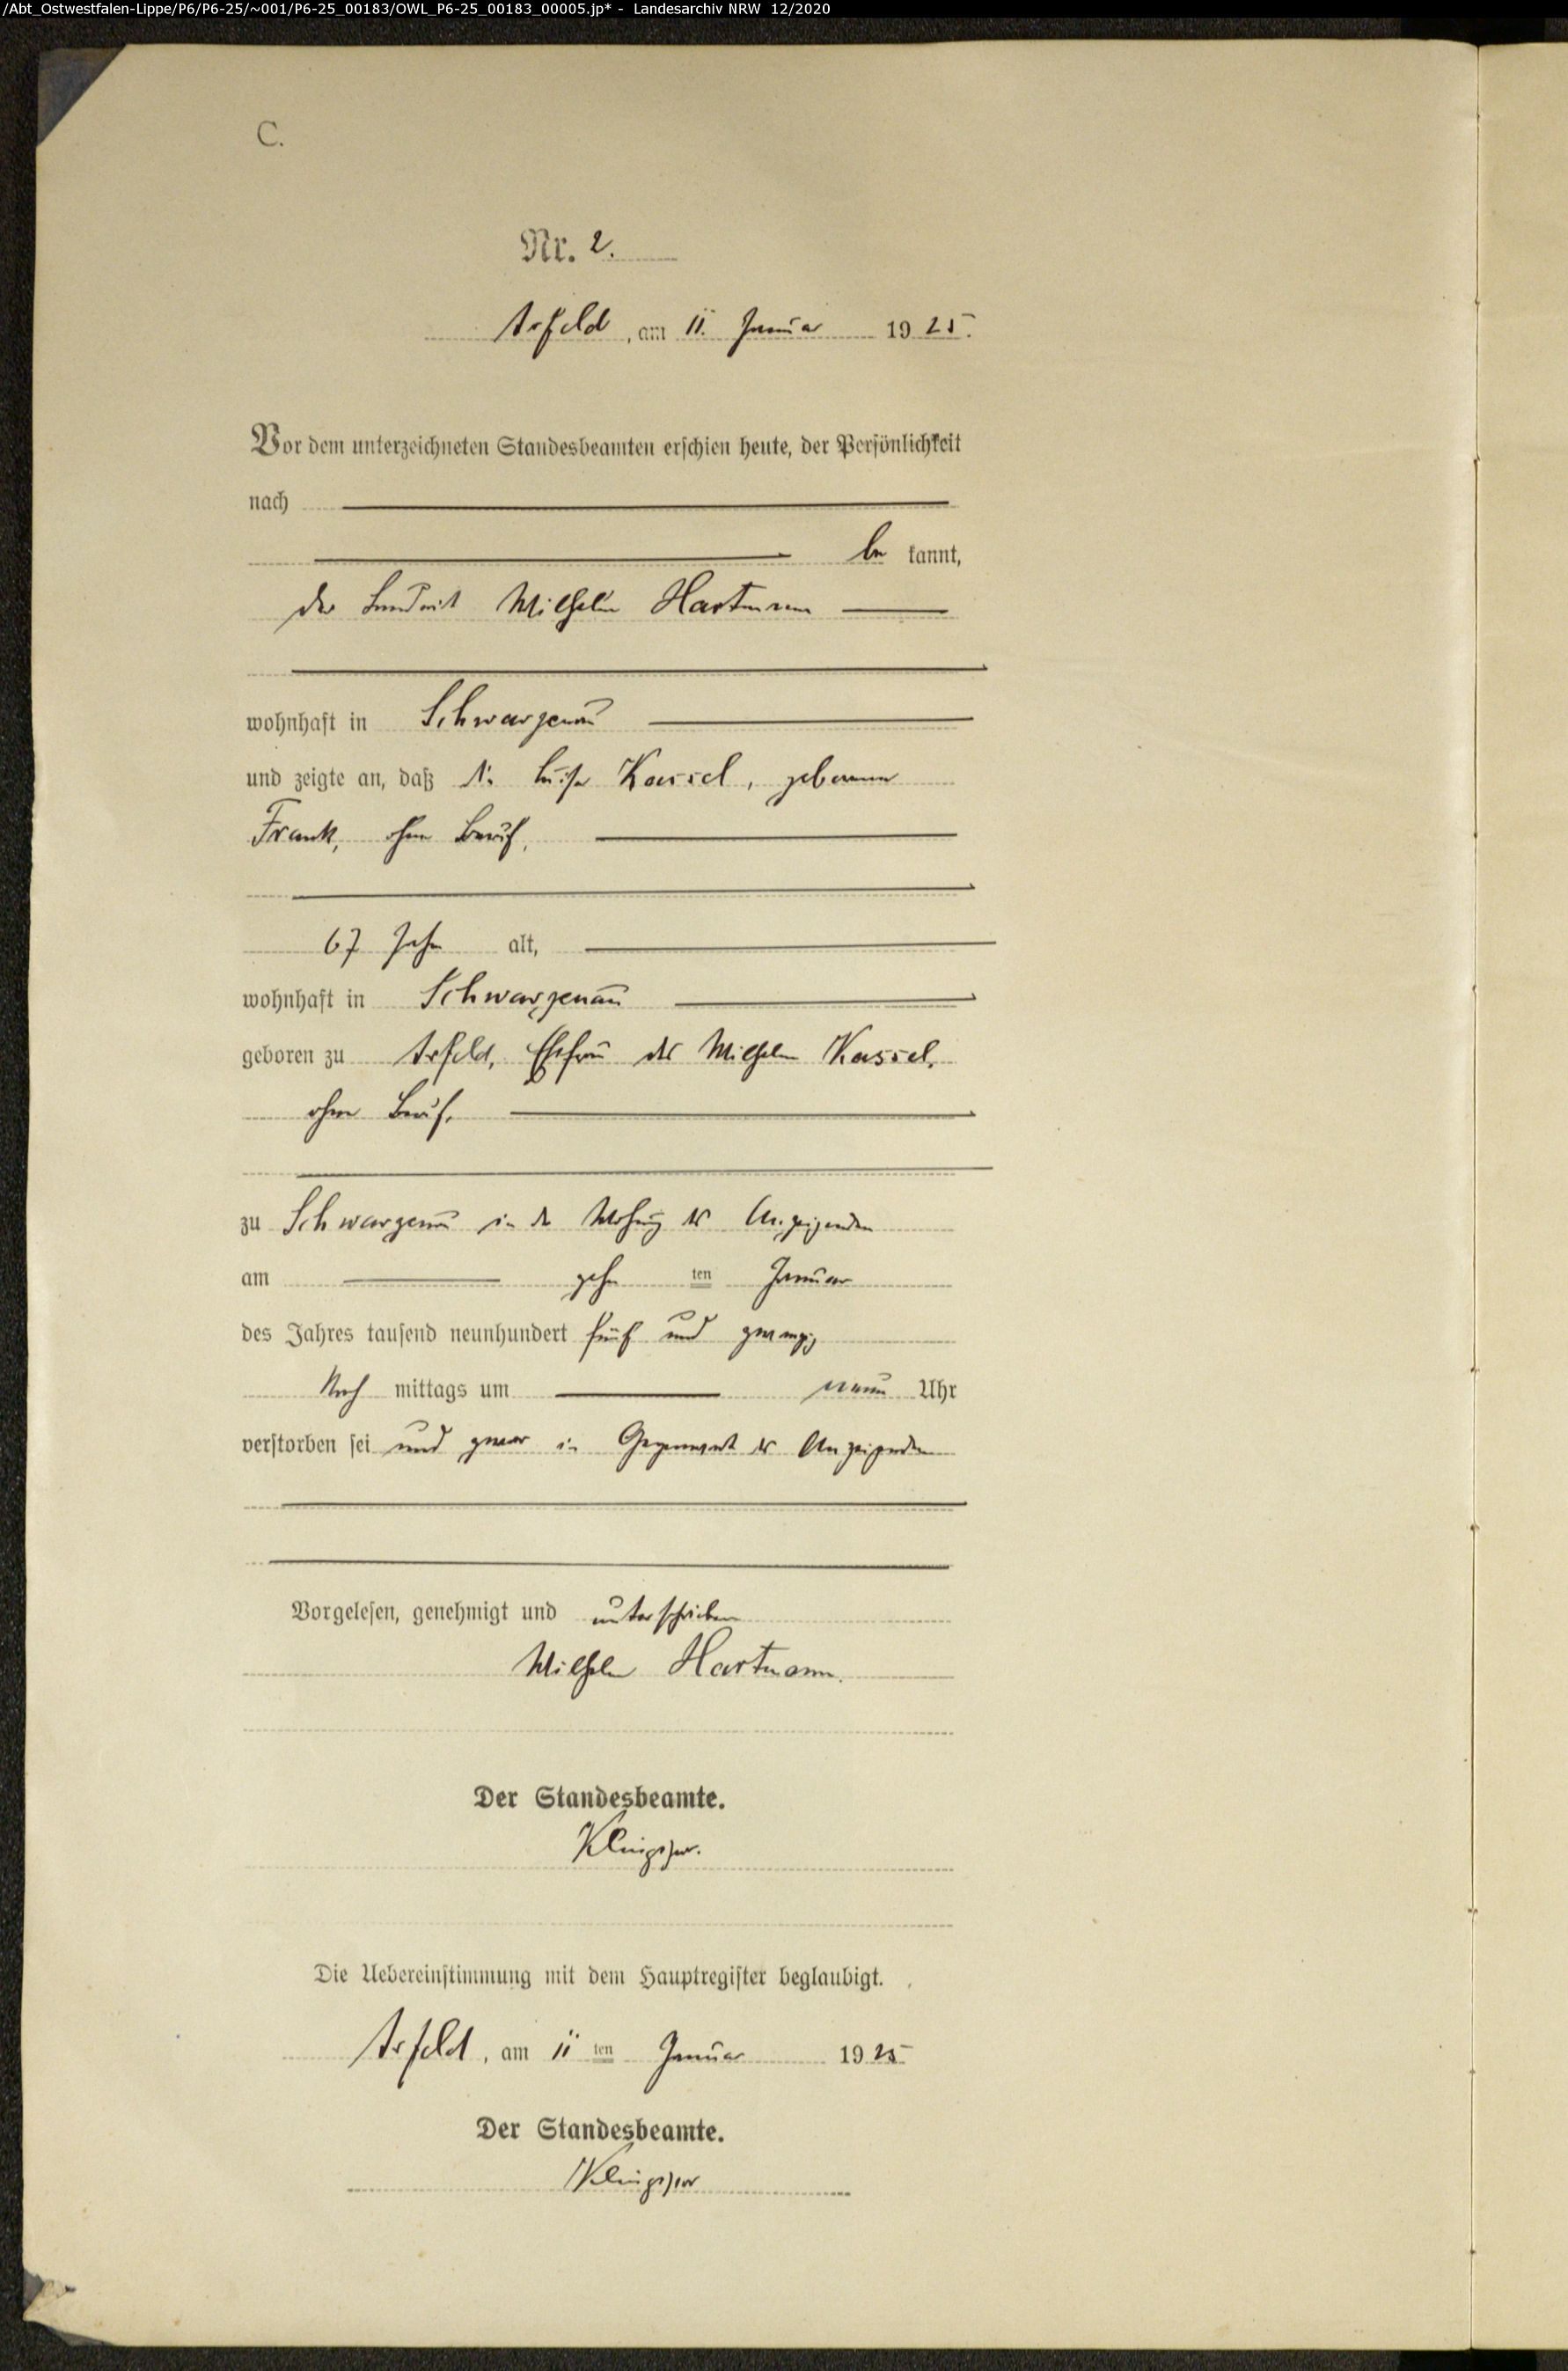 /Abt_Ostwestfalen-Lippe/P6/P6-25/~001/P6-25_00183/OWL_P6-25_00183_00005.jp* - Landesarchiv NRW 12/2020
C.
Nr. 2.
Arfeld, am 11. Januar 1925.
Vor dem unterzeichneten Standesbeamten erschien heute, der Persönlichkeit
nach
be kannt,
der Landwirt Wilhelm Hartmann
wohnhaft in Schwarzenau
und zeigte an, daß die Luise Kassel, geborene
Frank, ohne Beruf,
67 Jahre alt,
wohnhaft in Schwarzenau
geboren zu Arfeld, Ehefrau des Wilhelm Kassel,
ohne Beruf,
zu Schwarzenau in der Wohnung des Anzeigenden
am zehn ten Januar
des Jahres tausend neunhundert fünf und zwanzig
Nach mittags um neun Uhr
verstorben sei und zwar in Gegenwart des Anzeigenden
Vorgelesen, genehmigt und unterschrieben
Wilhelm Hartmann.
Der Standesbeamte.
Die Uebereinstimmung mit dem Hauptregister beglaubigt.
Arfeld, am 11 ten Januar 1925
Der Standesbeamte.